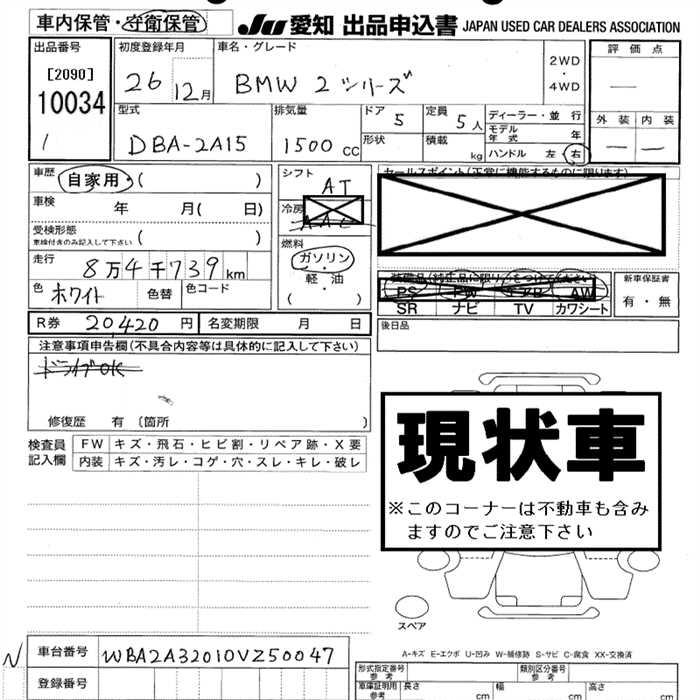 車内保管・守衛保管
JU 愛知 出品申込書 JAPAN USED CAR DEALERS ASSOCIATION
出品番号
[2090]
10034
/
初度登録年月
26
12月
車名・グレード
BMW 2シリーズ
2WD
・
4WD
評価点
—
外装 内装
— —
型式
DBA-2A15
排気量
1500 CC
ドア
5
定員
5人
形状
積載
kg
ディーラー・並行
モデル年式 年
ハンドル 左・右
車歴
自家用・( )
車検
年 月( 日)
受検形態
車検付きのみ記入して下さい
( )
走行
8万4千739km
色
ホワイト
色替
色コード
シフト
AT
冷房
AAC
燃料
ガソリン・
軽・油
( )
セールスポイント(正常に機能するものに限ります)
PS PW エアB AW
SR ナビ TV カワシート
新車保証書
有・無
後日品
R券 20420 円
名変期限 月 日
注意事項申告欄(不具合内容等は具体的に記入して下さい)
ドライブOK
修復歴 有 〔箇所 〕
検査員
記入欄
FW キズ・飛石・ヒビ割・リペア跡・X要
内装 キズ・汚レ・コゲ・穴・スレ・キレ・破レ
現状車
※このコーナーは不動車も含み
ますのでご注意下さい
スペア
A-キズ E-エクボ U-凹み W-補修跡 S-サビ C-腐食 XX-交換済
N
車台番号
WBA2A32010VZ50047
登録番号
形式指定番号
参考
類別区分番号
参考
車庫証明用
参考
長さ cm
幅 cm
高さ cm